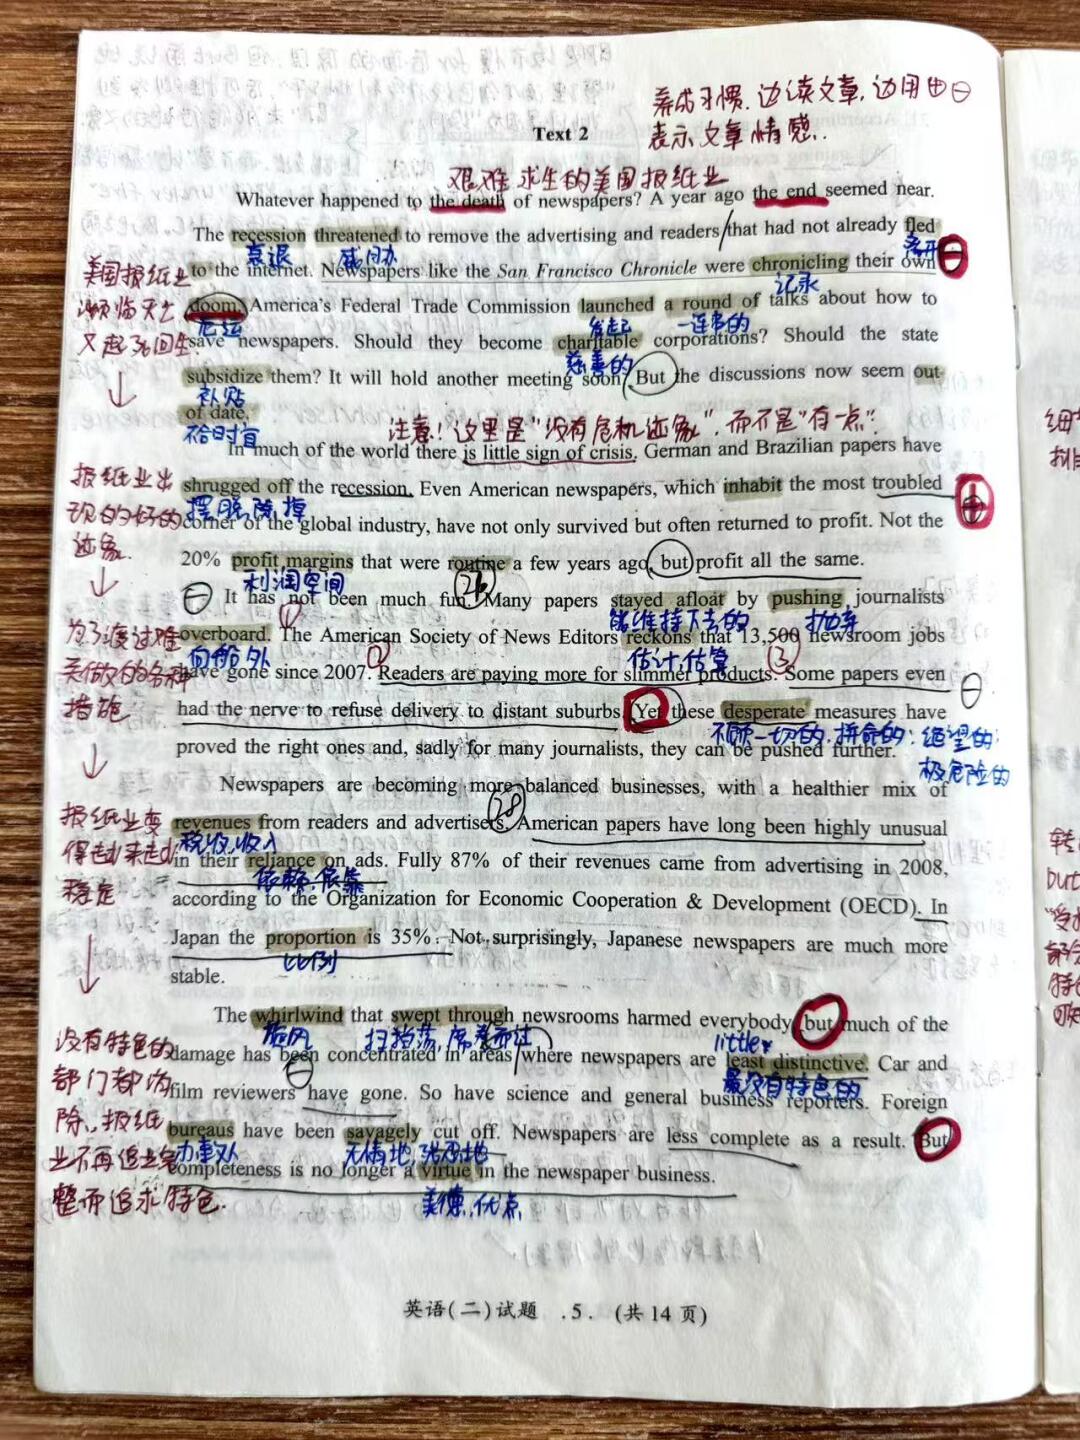 养成习惯，边读文章，边用⊕⊖
表示文章情感．
Text 2
艰难求生的美国报纸业
Whatever happened to the death of newspapers? A year ago the end seemed near.
The recession threatened to remove the advertising and readers that had not already fled
衰退
离开
to the internet. Newspapers like the San Francisco Chronicle were chronicling their own
记录
美国报纸业
濒临灭亡
又起死回生
doom. America's Federal Trade Commission launched a round of talks about how to
厄运
发起
一连串的
save newspapers. Should they become charitable corporations? Should the state
慈善的
subsidize them? It will hold another meeting soon. But the discussions now seem out-
补贴
of date.
不合时宜
注意！这里是"没有危机迹象"，而不是"有一点"．
In much of the world there is little sign of crisis. German and Brazilian papers have
shrugged off the recession. Even American newspapers, which inhabit the most troubled
摆脱，除掉
报纸业出
现的好的
迹象．
corner of the global industry, have not only survived but often returned to profit. Not the
20% profit margins that were routine a few years ago, but profit all the same.
利润空间
26
It has not been much fun. Many papers stayed afloat by pushing journalists
能维持下去的
抛弃
overboard. The American Society of News Editors reckons that 13,500 newsroom jobs
向船外
估计，估算
①
②
③
为了渡过难
关做的各种
措施
have gone since 2007. Readers are paying more for slimmer products. Some papers even
had the nerve to refuse delivery to distant suburbs. Yet these desperate measures have
不顾一切的，拼命的；绝望的；
极危险的
proved the right ones and, sadly for many journalists, they can be pushed further.
Newspapers are becoming more balanced businesses, with a healthier mix of
28
revenues from readers and advertisers. American papers have long been highly unusual
税收，收入
报纸业变
得越来越
稳定
in their reliance on ads. Fully 87% of their revenues came from advertising in 2008,
依赖，依靠
according to the Organization for Economic Cooperation & Development (OECD). In
Japan the proportion is 35%. Not surprisingly, Japanese newspapers are much more
比例
stable.
The whirlwind that swept through newsrooms harmed everybody, but much of the
旋风
扫荡，席卷而过
little
damage has been concentrated in areas where newspapers are least distinctive. Car and
最没有特色的
film reviewers have gone. So have science and general business reporters. Foreign
bureaus have been savagely cut off. Newspapers are less complete as a result. But
办事处
无情地，
没有特色的
部门都消
除，报纸
业不再追求完
整而追求特色．
completeness is no longer a virtue in the newspaper business.
美德，优点
英语（二）试题 . 5 . （共 14 页）
细节
转
but